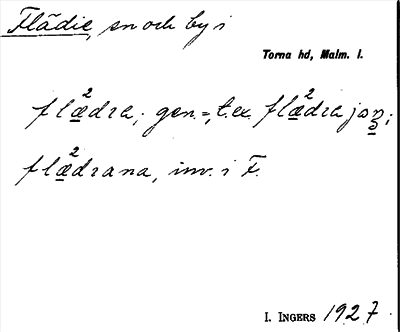 Flädie, sn och by i
Torna hd, Malm. l.
flæ²dra; gen. =, t.ex. flæ²dra jo
flæ²drana, inv. i F.
I. INGERS 1927